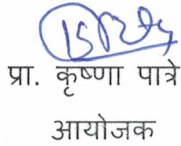 प्रा. कृष्णा पात्रे
आयोजक